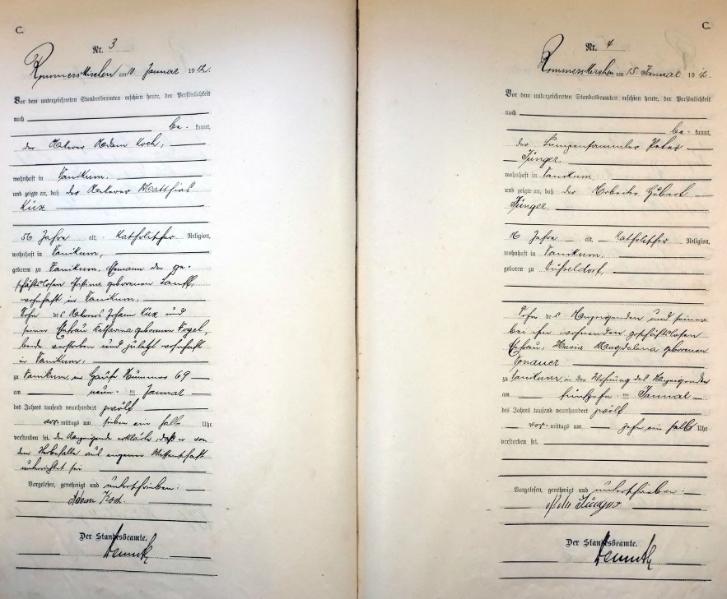 C.
Nr. 3
Rommerskirchen am 11 Januar 1912.
Vor dem unterzeichneten Standesbeamten erschien heute, der Persönlichkeit
nach
be- kannt,
der Ackerer Adam Koch,
wohnhaft in Vanikum.
und zeigte an, daß der Ackerer Matthias
Kux
56 Jahre alt, Katholischer Religion,
wohnhaft in Vanikum,
geboren zu Vanikum, Ehemann der ge-
schäftslosen geborenen
wohnhaft in Vanikum.
Sohn des Ackerers Johann Kux und
seiner Ehefrau Katharina geborenen Vogel,
beide verstorben und zuletzt wohnhaft
in Vanikum.
zu Vanikum im Hause Nummer 69
am neun ten Januar
des Jahres tausend neunhundert zwölf
vor mittags um sieben ein halb Uhr
verstorben sei. der Anzeigende erklärte, daß er von
dem Sterbefalle aus eigener Wissenschaft
unterrichtet sei
Vorgelesen, genehmigt und unterschrieben:
Adam Koch.
Der Standesbeamte.
C.
Nr. 4
Rommerskirchen am 15 Januar 1912.
Vor dem unterzeichneten Standesbeamten erschien heute, der Persönlichkeit
nach
be- kannt,
der Lumpensammler Peter
Jünger
wohnhaft in Vanikum
und zeigte an, daß der Arbeiter Hubert
Jünger
16 Jahre alt, Katholischer Religion,
wohnhaft in Vanikum,
geboren zu Düsseldorf,
Sohn des Anzeigenden und seiner
bei ihm wohnenden geschäftslosen
Ehefrau, Maria Magdalena geborenen
zu Vanikum in der Wohnung des Anzeigenden
am ten Januar
des Jahres tausend neunhundert zwölf
vor mittags um zehn ein halb Uhr
verstorben sei.
Vorgelesen, genehmigt und unterschrieben:
Peter Jünger
Der Standesbeamte.